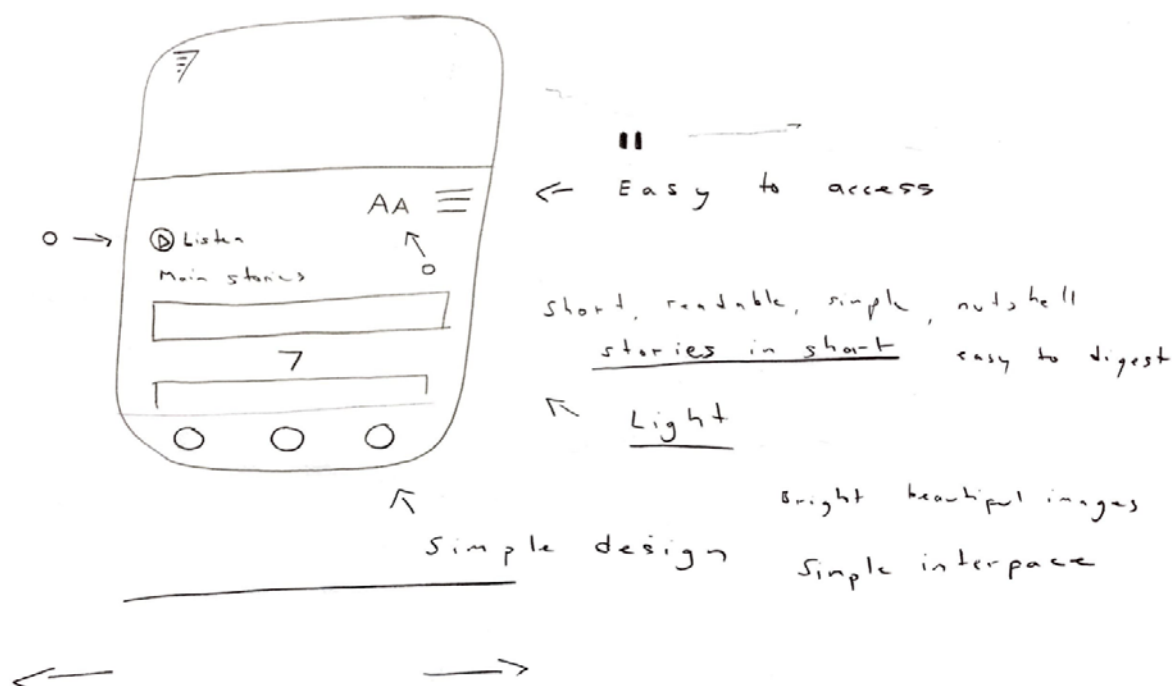 Easy to access
AA
Listen
Main stories
short, readable, simple, nutshell
stories in short easy to digest
7
Light
Bright beautiful images
Simple design
Simple interpace